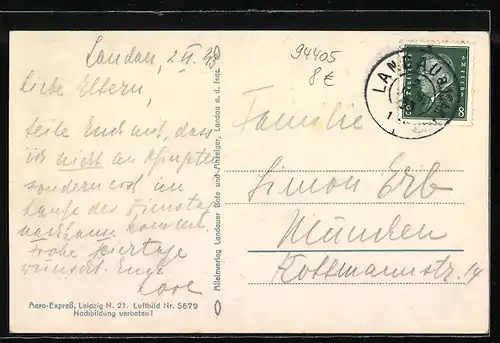 Landau, 2.VI.33
Liebe Eltern,
teile Euch mit, dass
ich nicht an Pfingsten
sondern erst im
Laufe des Dienstag
nachhause komme.
Frohe Feiertage
wünscht Euch
Aero-Expreß, Leipzig N. 21. Luftbild Nr. 5679
Nachbildung verboten!
Alleinverlag Landauer Bote und Anzeiger, Landau a. d. Isar
94405
8 €
LANDAU
8
Familie
Simon Erb
München
Rottmannstr. 14